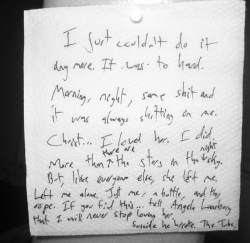 I just couldn't do it
any more. It was to hard.
Morning, night, same shit and
it was always shitting on me.
Christ... I loved her. I did.
More then there are the stars in the night sky.
But, like everyone else, she left me.
Left me alone. Just me, a bottle, and this
rope. If you find this... tell Angela
that I will never stop loving her.
Suicide he wrote. The